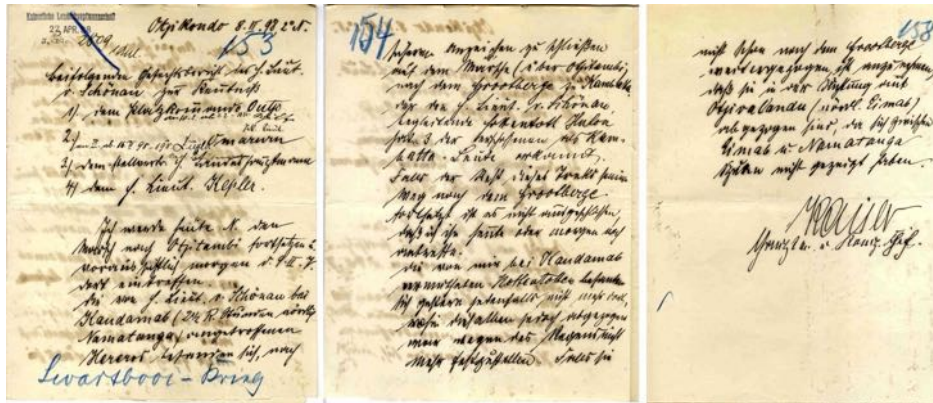 Kaiserliche Landeshauptmannschaft
22. APR. 98
Otjikondo 8. II. 98 2° N.
153
beifolgenden Gefechtsbericht des H. Lieut.
v. Schönau zur Kenntniß
1) dem Platzkommando Outjo
2)
3) dem stellvertr. H. Landeshauptmann
4) dem H. Lieut. Keßler.
Ich werde heute N. den
Marsch nach Otjitambi fortsetzen u.
voraussichtlich morgen d. 9. II. 
dort eintreffen.
die von H. Lieut. v. Schönau bei
Kandamab (2½ R. Stunden nördl.
Namatanga) angetroffenen
Hereros befanden sich, nach
Swartbooi-Krieg
154
sicheren Anzeichen zu schließen
auf dem Marsche (über Otjitambi)
nach dem Grootberge zu
der den H. Lieut. v. Schönau
begleitende Hottentott
hat 3 der
Leute erkannt.
Falls der Rest dieses Trekks seinen
Weg nach dem Grootberge
fortsetzt ist es nicht ausgeschlossen,
daß ich ihn heute oder morgen noch
antreffe.
die von mir bei Kandamab
vermutheten Hottentotten befanden
sich gestern jedenfalls nicht mehr dort,
wohin dieselben jedoch abgezogen
war wegen des Regens nicht
mehr festzustellen. Falls sie
158
nicht schon nach dem Grootberge
weitergezogen ist anzunehmen,
daß sie in der Richtung auf
(nördl. Gimab)
abgezogen sind, da sich zwischen
Gimab u. Namatanga
nicht gezeigt haben.
Kaiser